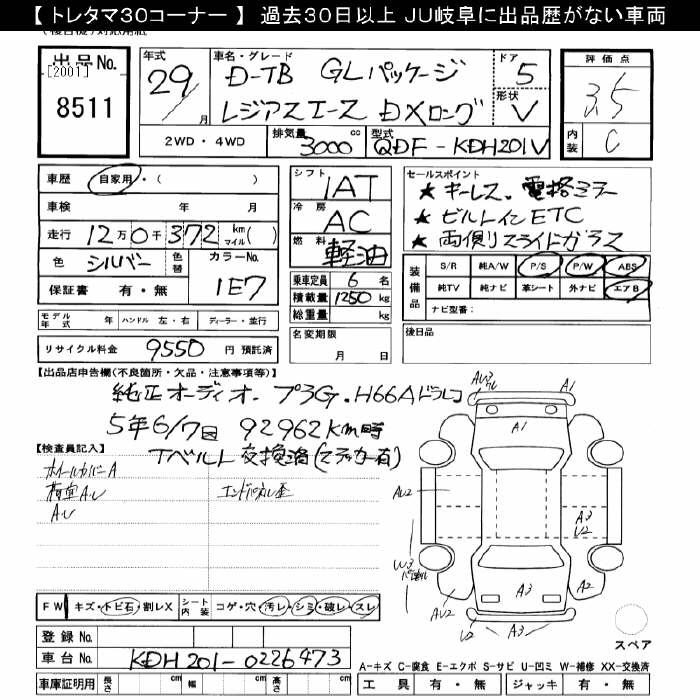 【トレタマ30コーナー】 過去30日以上 JU岐阜に出品歴がない車両
出品No. [2001] 8511
年式 29/ 月
車名・グレード D-TB GLパッケージ
レジアスエース DXロング
ドア 5
形状 V
評価点 3.5
内装 C
2WD・4WD 排気量 3000 cc 型式 QDF-KDH201V
車歴 自家用・( )
車検 年 月
走行 12万0千372 km マイル( )
色 シルバー 色替 カラーNo. 1E7
保証書 有・無
モデル年式 年 ハンドル 左・右 ディーラー・並行
リサイクル料金 9550 円 預託済
シフト IAT
冷房 AC
燃料 軽油
乗車定員 6 名
積載量 1250 kg
総重量 kg
名変期限 月 日
セールスポイント
★キーレス、電格ミラー
★ビルトインETC
★両側スライドガラス
装備品 S/R 純A/W P/S P/W ABS
純TV 純ナビ 革シート 外ナビ エアB
ナビ型番:
後日品
【出品店申告欄(不良箇所・欠品・注意事項等)】
純正オーディオ. プラG. H66Aドラレコ
5年6/7日 92962km時
Tベルト交換済(ステッカー有)
【検査員記入】
ホイールカバーA
荷室A.U エンドパネル歪
A.U
AU2 A1
A1
AU2
A3
U2
W3
AU2 A3 A2
U2 A3
スペア
FW キズ・トビ石・割レX シート内装 コゲ・穴・汚レ・シミ・破レ・スレ
登録No.
車台No. KDH201-0226473
車庫証明用 長さ cm 幅 cm 高さ cm
A-キズ C-腐食 E-エクボ S-サビ U-凹ミ W-補修 XX-交換済
工具 有・無 ジャッキ 有・無